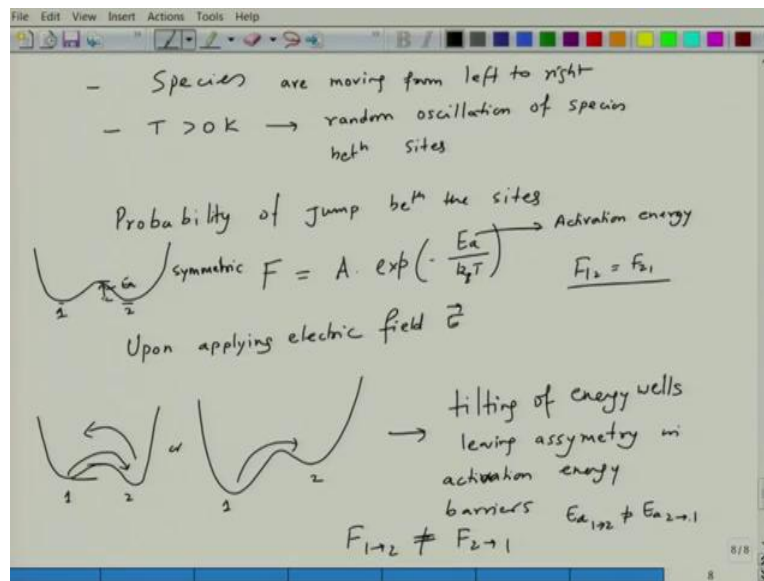 File Edit View Insert Actions Tools Help
- Species are moving from left to right
- T > 0 K → random oscillation of species
betⁿ sites
Probability of Jump betⁿ the sites
symmetric F = A. exp(- Ea/k_BT) → Activation energy
F₁₂ = F₂₁
Ea
1 2
Upon applying electric field
1 2 or 1 2 → tilting of energy wells
leaving assymetry in
activation energy
barriers Ea₁→₂ ≠ Ea₂→₁
F₁→₂ ≠ F₂→₁
8/8
8